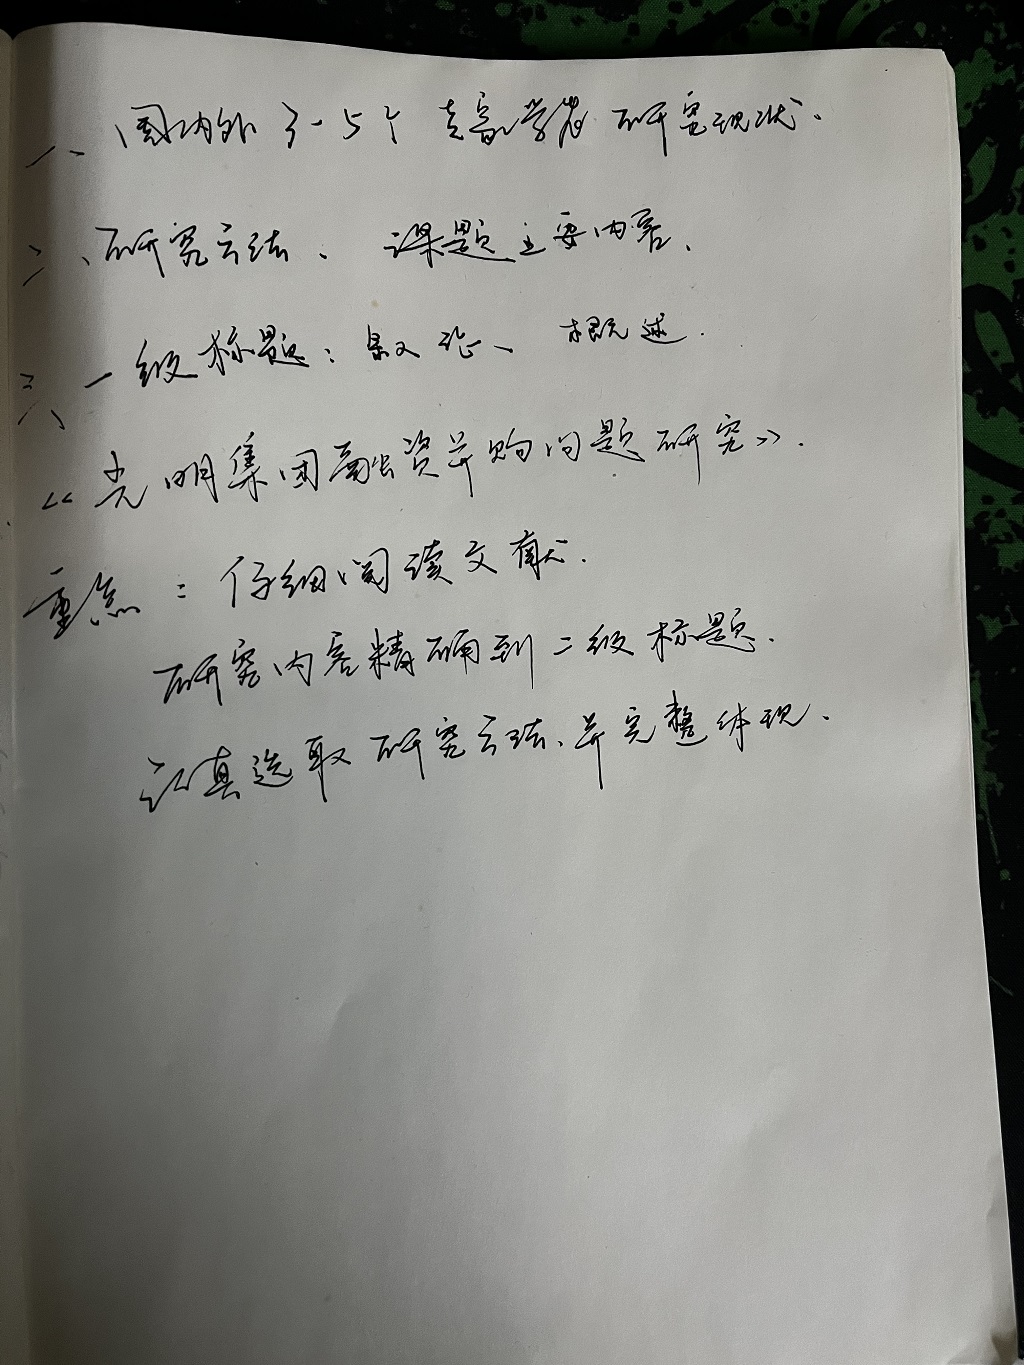 一、国内外3-5个 学者研究现状.
二、研究方法、课题主要内容.
三、一级标题：叙论、概述.
《光明集团融资并购问题研究》.
重点：仔细阅读文献.
研究内容精确到二级标题.
认真选取研究方法、并完整体现.